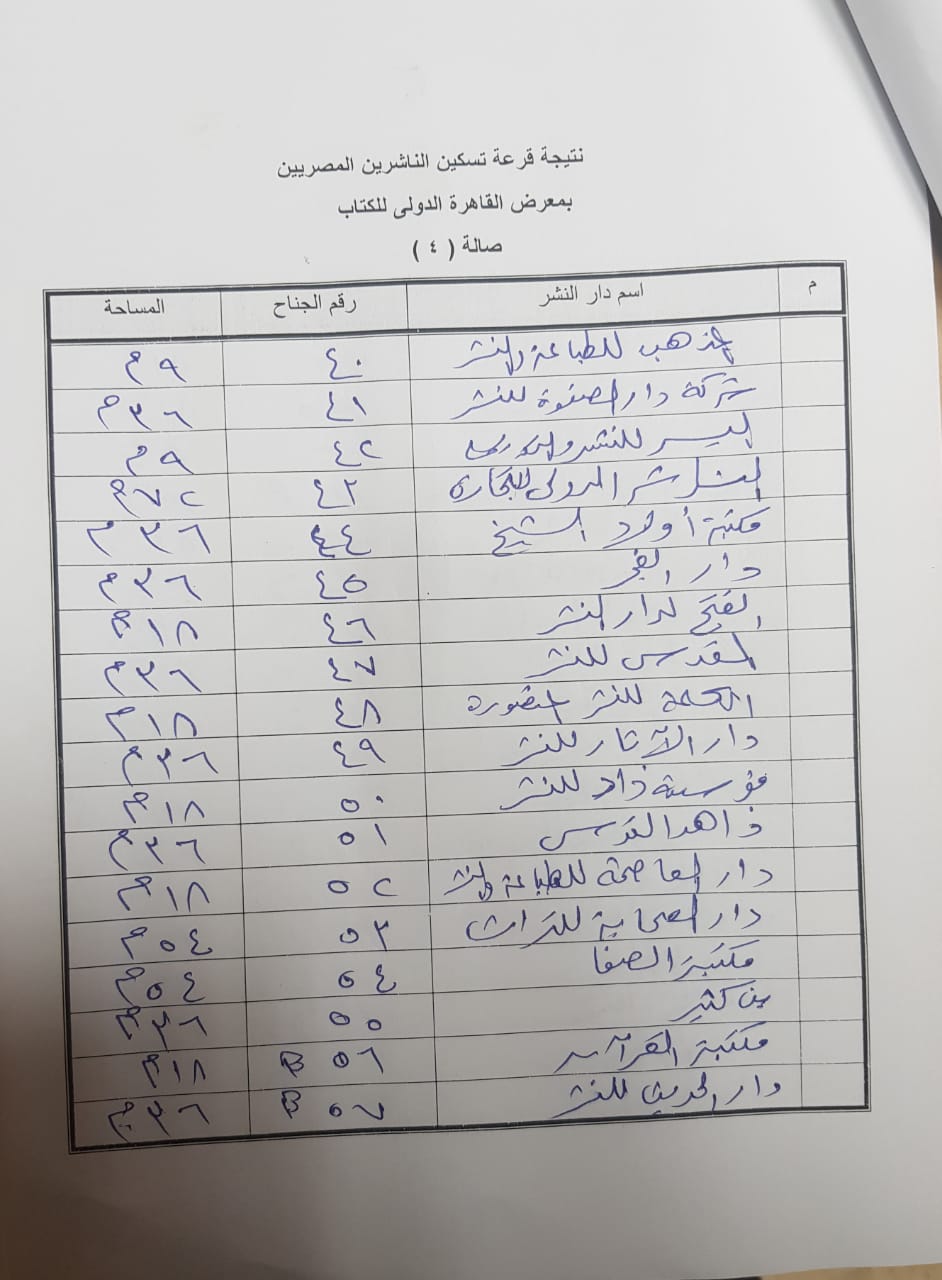 نتيجة قرعة تسكين الناشرين المصريين
بمعرض القاهرة الدولى للكتاب
صالة ( ٤ )
م اسم دار النشر رقم الجناح المساحة
الذهب للطباعة والنشر ٤٠ ٩م
شركة دار الصفوة للنشر ٤١ ٣٦م
اليسر للنشر ٤٢ ٩م
الناشر الدولى للتجارة ٤٣ ٧٢م
مكتبة أولاد الشيخ ٤٤ ٣٦م
دار ٤٥ ٣٦م
الفتح لدار النشر ٤٦ ١٨م
القدس للنشر ٤٧ ٣٦م
للنشر المنصورة ٤٨ ١٨م
دار الآثار للنشر ٤٩ ٣٦م
مؤسسة زاد للنشر ٥٠ ١٨م
زاهد القدسى ٥١ ٣٦م
دار العاصمة للطباعة والنشر ٥٢ ١٨م
دار الصحابة للتراث ٥٣ ٥٤م
مكتبة الصفا ٥٤ ٥٤م
بن كثير ٥٥ ٣٦م
مكتبة القرآن ٥٦ B ١٨م
دار الحديث للنشر ٥٧ B ٣٦م